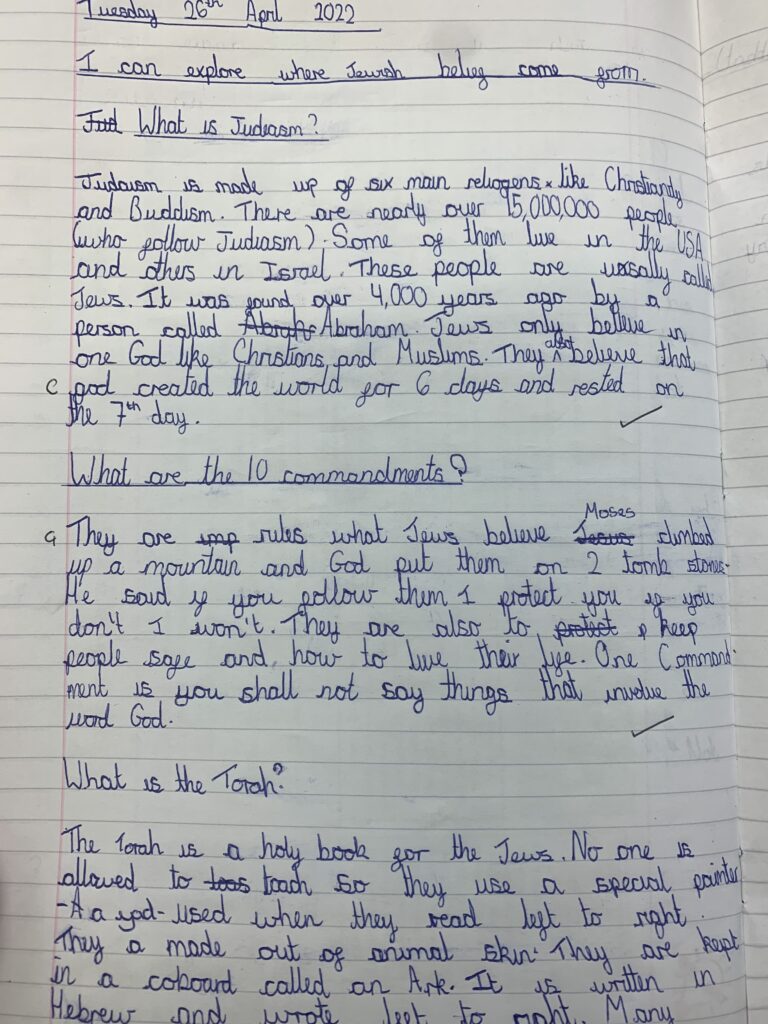 Tuesday 26th April 2022
I can explore where Jewish belief come from.
What is Judiasm?
Judaism is made up of six main reliogens like Christiandy
and Buddism. There are nearly over 15,000,000 people
(who follow Judiasm). Some of them live in the USA
and others in Israel. These people are usually called
Jews. It was found over 4,000 years ago by a
person called Abrah Abraham. Jews only believe in
one God like Christians, and Muslims. They also believe that
c god created the world for 6 days and rested on
the 7th day.
What are the 10 commandments?
a They are imp rules what Jews believe Jesus Moses climbed
up a mountain and God put them on 2 tomb stones.
He said if you follow them I protect you if you
don't I won't. They are also to protect p keep
people safe and how to live their life. One Command-
ment is you shall not say things that involve the
word God.
What is the Torah?
The Torah is a holy book for the Jews. No one is
allowed to toach so they use a special pointer
-A a yod- Used when they read left to right.
They a made out of animal skin. They are kept
in a coboard called an Ark. It is written in
Hebrew and wrote left to right. Many